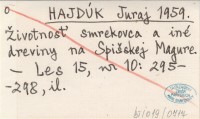 HAJDÚK Juraj 1959.
Životnosť smrekovca a iné
dreviny na Spišskej Magure.
— Les 15, nr 10: 295-
-298, il.